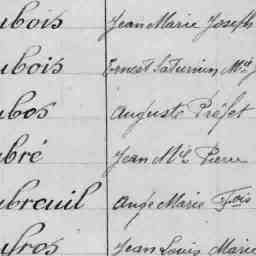 ubois Jean Marie Joseph
ubois Ernest Saturnin M^ie
ubos Auguste Préfet
ubré Jean M^ie Pierre
ubreuil Ange Marie F^ois
ufros Jean Louis Marie